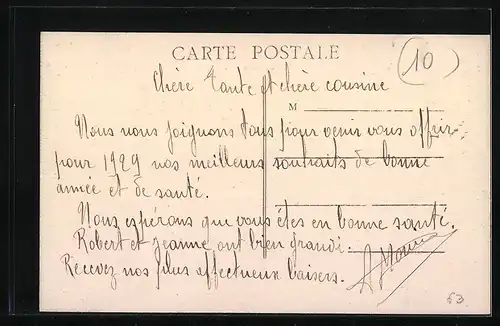 CARTE POSTALE
(10)
Chère Tante et chère cousine
M
Nous nous joignons tous pour venir vous offrir
pour 1929 nos meilleurs souhaits de bonne
année et de santé.
Nous espérons que vous êtes en bonne santé.
Robert et Jeanne ont bien grandi.
Recevez nos plus affectueux baisers.
63